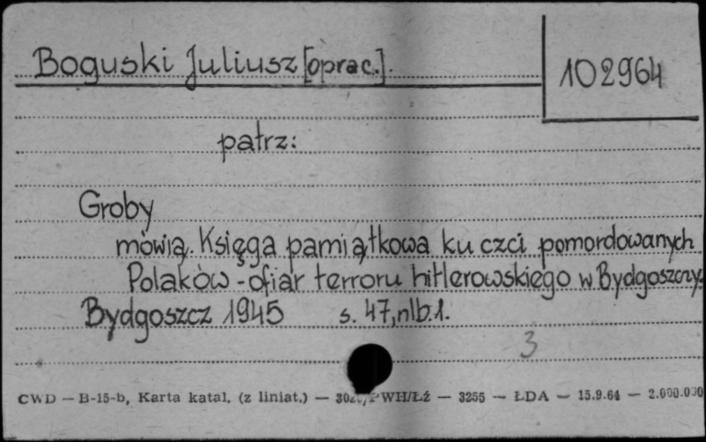 Boguski Juliusz [oprac.].
102964
patrz:
Groby
mówią. Księga pamiątkowa ku czci pomordowanych
Polaków - ofiar terroru hitlerowskiego w Bydgoszczy.
Bydgoszcz 1945 s. 47, nlb. 1.
3
CWD — B-15-b, Karta katal. (z liniat.) — WH/Łź — 3255 — ŁDA — 15.9.64 — 2.000.000